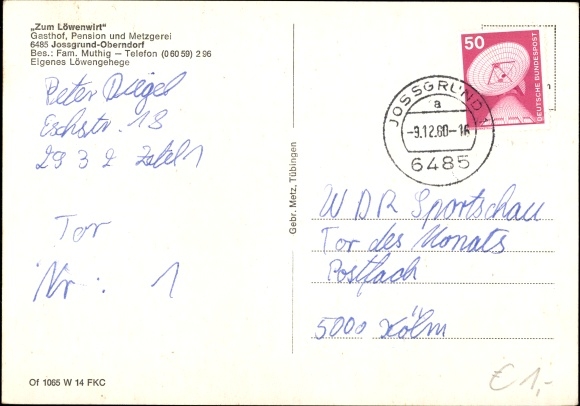 „Zum Löwenwirt“
Gasthof, Pension und Metzgerei
6485 Jossgrund-Oberndorf
Bes.: Fam. Muthig – Telefon (06059) 296
Eigenes Löwengehege
Peter Diegel
Eschstr. 13
2932 Zetel 1
Tor
Nr: 1
Of 1065 W 14 FKC
Gebr. Metz, Tübingen
50
DEUTSCHE BUNDESPOST
JOSSGRUND 1
a
-9.12.80-16
6485
WDR Sportschau
Tor des Monats
Postfach
5000 Kölm
€ 1,-